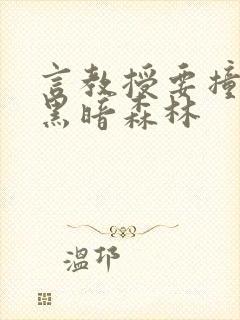 言教授要撞
黑暗森林
温邛